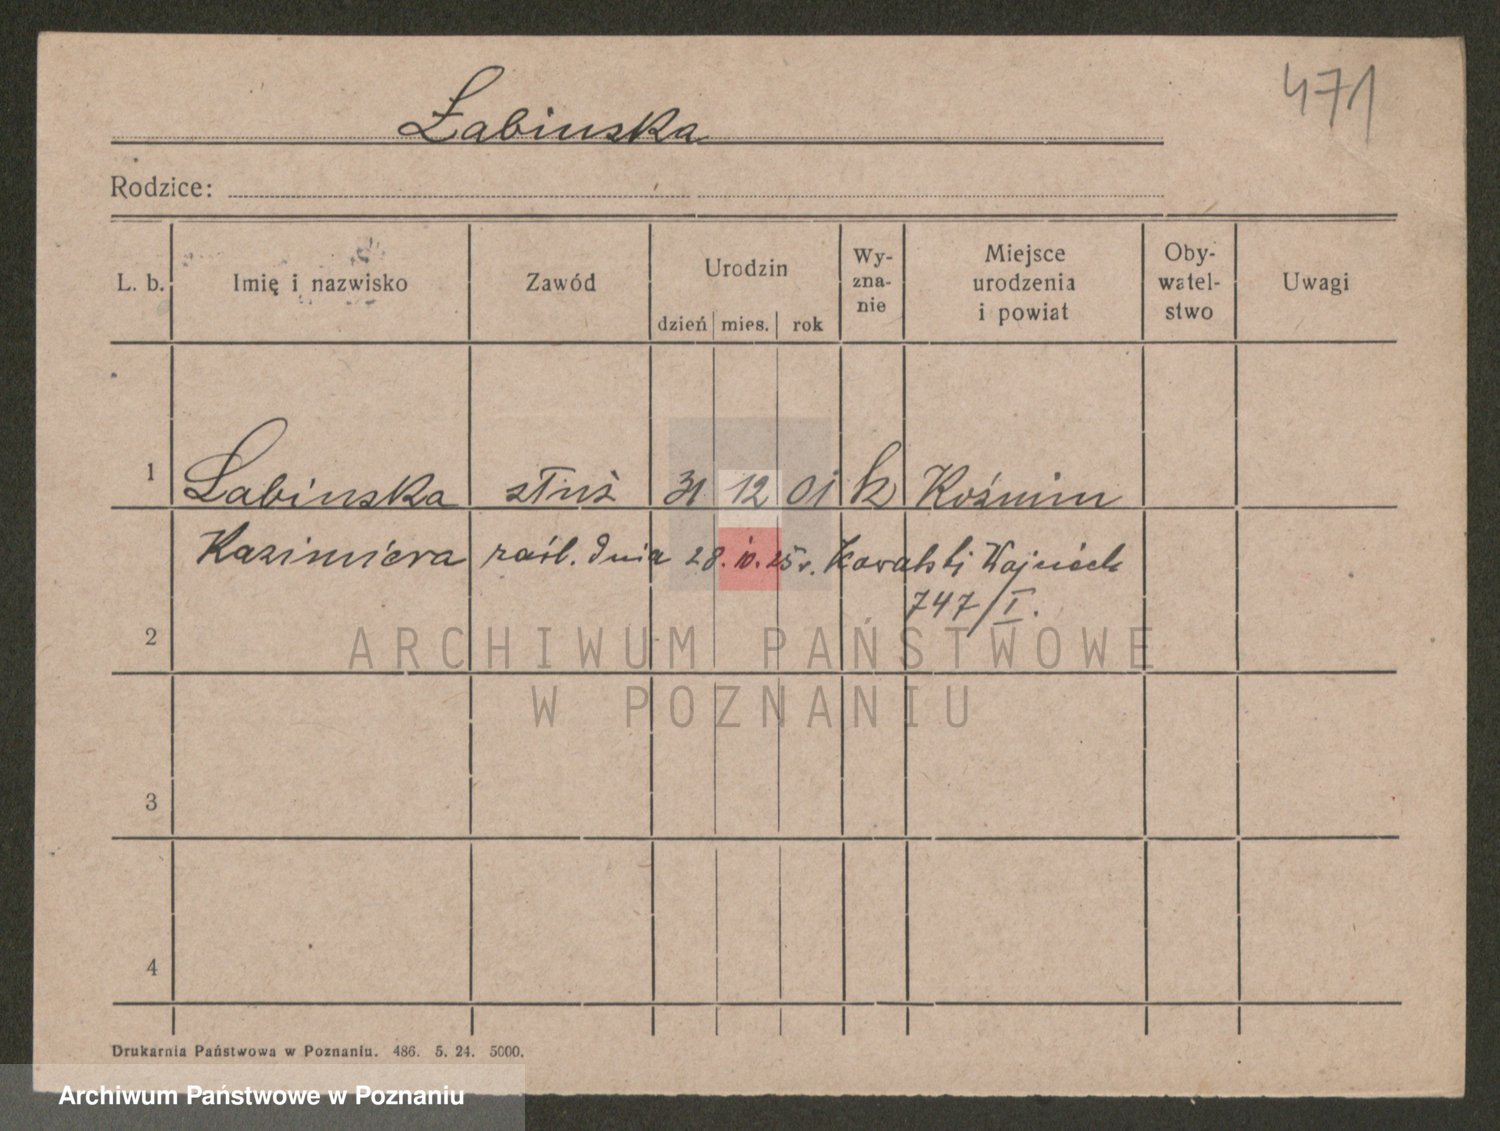 471
Łabinska
Rodzice:
L. b.
Imię i nazwisko
Zawód
Urodzin
dzień mies. rok
Wy-
zna-
nie
Miejsce
urodzenia
i powiat
Oby-
watel-
stwo
Uwagi
1 Łabinska służ 31 12 01 k Koźmin
Kazimiera zaśl. dnia 28. 10. 25 r. Kowalski Wojciech
747/I.
2
ARCHIWUM PAŃSTWOWE
W POZNANIU
3
4
Drukarnia Państwowa w Poznaniu. 486. 5. 24. 5000.
Archiwum Państwowe w Poznaniu